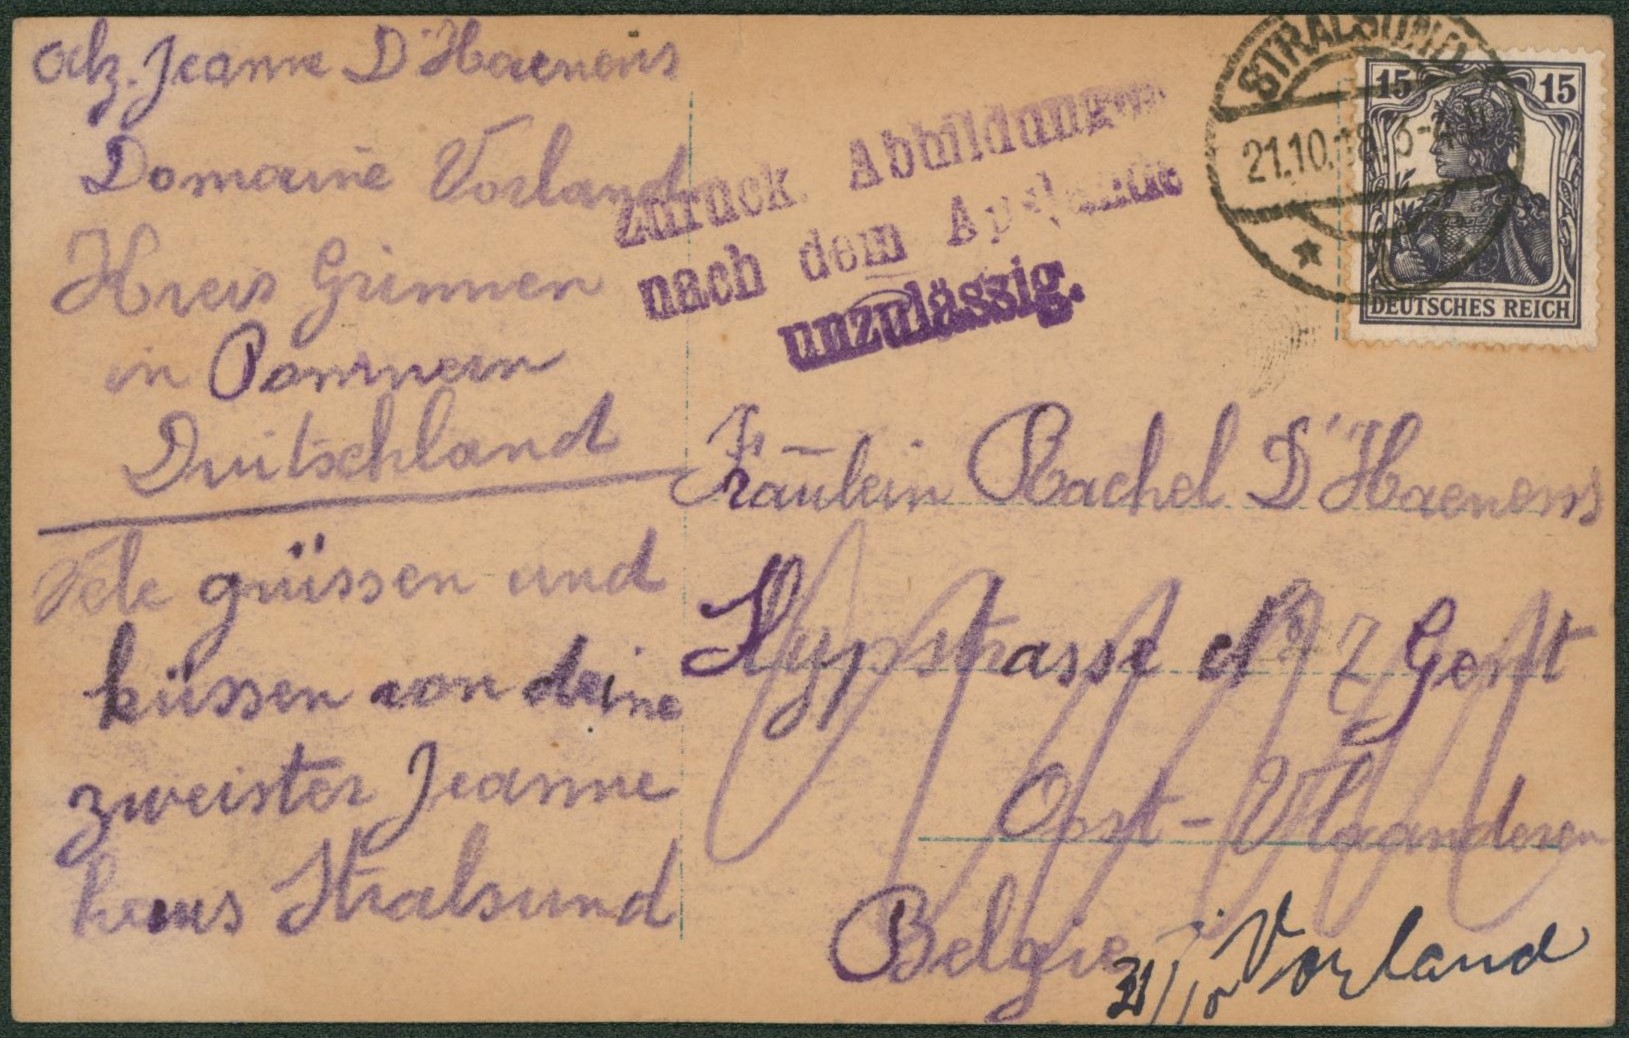 adz. Jeanne D'Haenens
Domaine Vorland
Kreis Grimmen
in Pommern
Duitschland
Vele grüssen und
küssen von deine
zweister Jeanne
heus Stralsund
Zurück. Abbildungen
nach dem Auslande
unzulässig.
STRALSUND
21.10.18.
15 15
DEUTSCHES REICH
Fräulein Rachel D'Haenens
strasse No 7 Gent
Oost-Vlaanderen
Belgie
21/10 Vorland